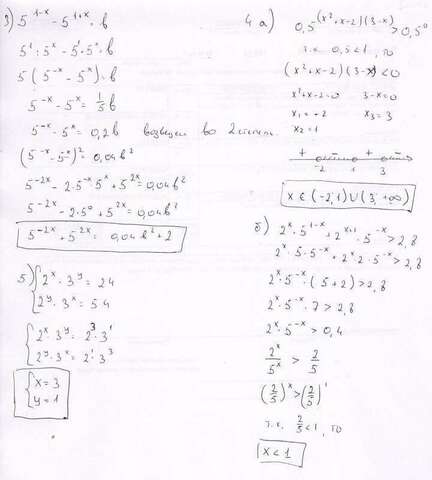 3) 5^(1-x) - 5^(1+x) = b
5¹ · 5^(-x) - 5¹ · 5^x = b
5 (5^(-x) - 5^x) = b
5^(-x) - 5^x = 1/5 b
5^(-x) - 5^x = 0,2b возведем во 2 степень.
(5^(-x) - 5^x)² = 0,04b²
5^(-2x) - 2·5^(-x)·5^x + 5^(2x) = 0,04b²
5^(-2x) - 2·5⁰ + 5^(2x) = 0,04b²
5^(-2x) + 5^(2x) = 0,04b² + 2
5) { 2^x · 3^y = 24
2^y · 3^x = 54
{ 2^x · 3^y = 2³ · 3¹
2^y · 3^x = 2¹ · 3³
{ x = 3
y = 1
4 а) 0,5^((x²+x-2)(3-x)) > 0,5⁰
т.к. 0,5<1, то
(x²+x-2)(3-x) < 0
x²+x-2=0 3-x=0
x₁=-2 x₃=3
x₂=1
+ - + -
-2 1 3
x ∈ (-2,1)∪(3,+∞)
б) 2^x · 5^(1-x) + 2^(x+1) · 5^(-x) > 2,8
2^x · 5 · 5^(-x) + 2^x · 2 · 5^(-x) > 2,8
2^x · 5^(-x) · (5+2) > 2,8
2^x · 5^(-x) · 7 > 2,8
2^x · 5^(-x) > 0,4
2^x/5^x > 2/5
(2/5)^x > (2/5)¹
т.к. 2/5 < 1, то
x < 1